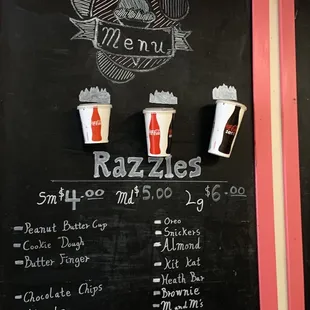 Menu
Coca-Cola
Coca-Cola
Razzles
Sm $4.00 Md $5.00 Lg $6.00
- Peanut Butter Cup
- Cookie Dough
- Butter Finger
- Chocolate Chips
- Oreo
- Snickers
- Almond
- Kit Kat
- Heath Bar
- Brownie
- M and M's